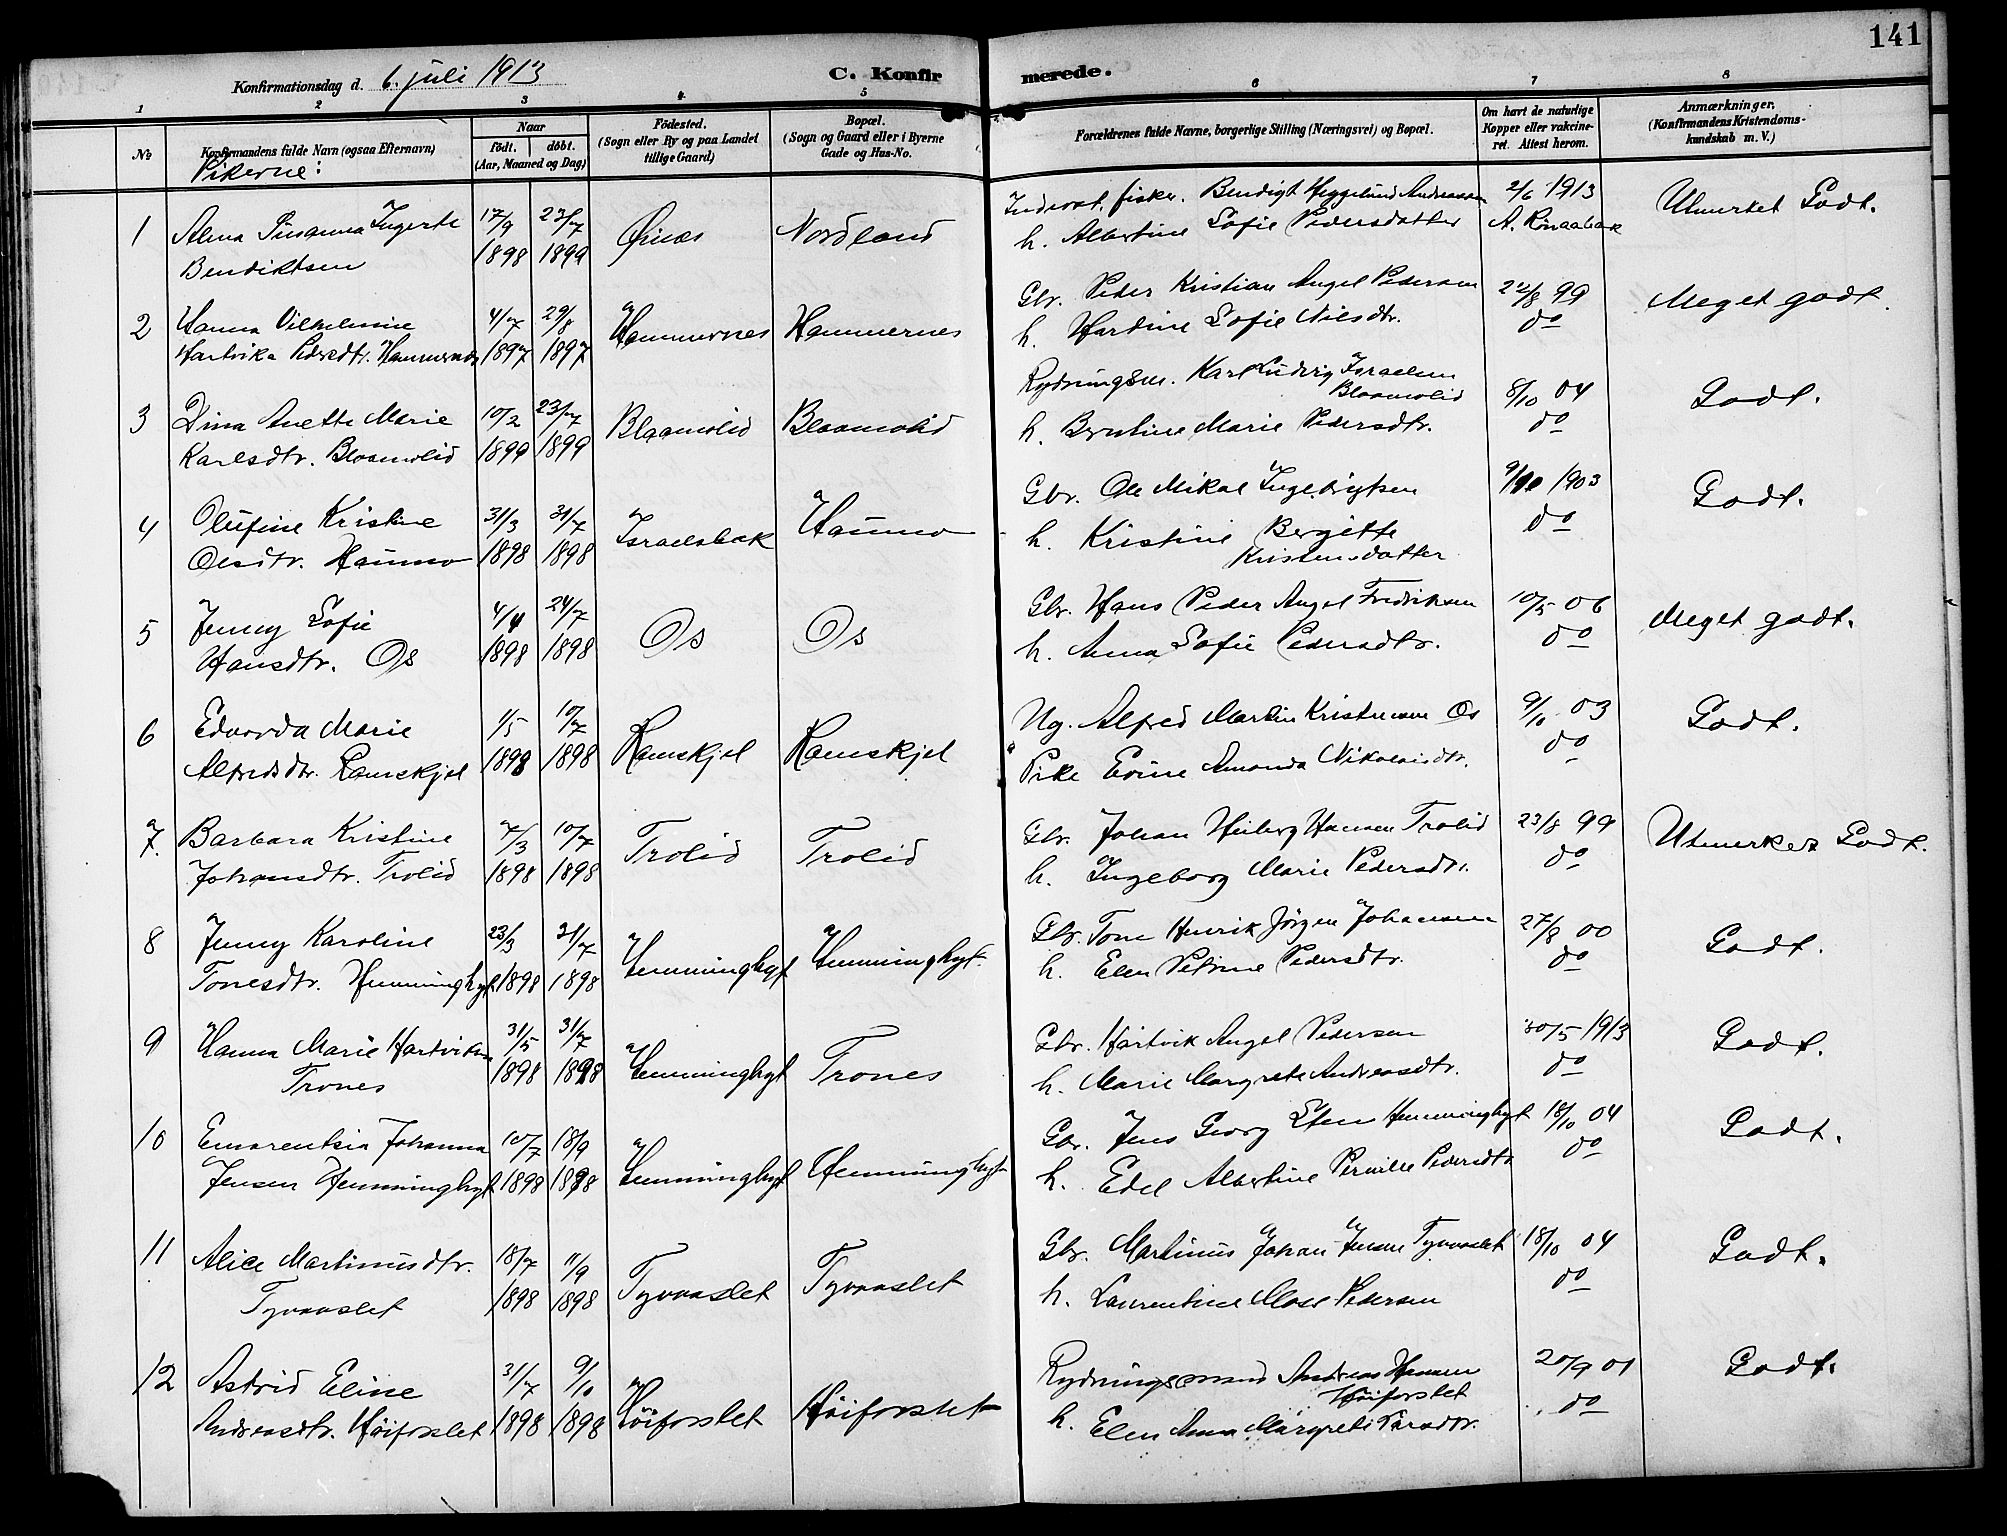 141
Konfirmationsdag d. 6. juli 1913
C. Konfirmerede.
1 2 3 4 5 6 7 8
No
Konfirmandens fulde Navn (ogsaa Efternavn)
Naar
födt. döbt.
(Aar, Maaned og Dag)
Födested.
(Sogn eller By og paa Landet
tillige Gaard)
Bopæl.
(Sogn og Gaard eller i Byerne
Gade og Hus-No.
Forældrenes fulde Navne, borgerlige Stilling (Næringsvei) og Bopæl.
Om havt de naturlige
Kopper eller vakcine-
ret. Attest herom.
Anmærkninger.
(Konfirmandens Kristendoms-
kundskab m. V.)
Pikerne:
1 Alma Susanna Ingerte 17/9 23/7 Øinæs Nordland Inderst, fisker. Bendigt Heggelund Andreassen 2/6 1913 Utmerket Godt.
Bendiktsen 1898 1899 h. Albertine Sofie Pedersdatter
2 Hanna Vilhelmine 4/7 29/8 Hammernes Hammernes Gbr. Peder Kristian Angel Pedersen 22/8 99 Meget godt.
Hartvika Pedersdtr. Hammernes 1897 1897 h. Hartine Sofie Nilsdtr. do
3 Dina Anette Marie 10/2 23/7 Blaamolid Blaamolid Rydningsm. Karl Ludvig Israelsen 8/10 04 Godt.
Blaamolid
Karlsdtr. Blaamolid 1899 1899 h. Berntine Marie Pedersdtr. do
4 Olufine Kristine 31/3 31/7 Israelsbak Haumo Gbr. Ole Mikal Ingebrigtsen 9/10 1903 Godt.
Olesdtr. Haumo 1898 1898 h. Kristine Bergitte do
Kristensdatter
5 Jenny Sofie 4/4 24/7 Os Os Gbr. Hans Peder Angel Fredriksen 10/5 06 Meget godt.
Hansdtr. Os 1898 1898 h. Anna Sofie Pedersdtr. do
6 Edvarda Marie 1/5 10/7 Ramskjel Ramskjel Ug. Alfred Martin Kristensen Os 9/10 03 Godt.
Alfredsdtr. Ramskjel 1898 1898 Pike Evine Amanda Nikolaisdtr. do
7. Barbara Kristine 7/3 10/7 Trolid Trolid Gbr. Johan Heiberg Hansen Trolid 23/8 99 Utmerket Godt.
Johansdtr. Trolid 1898 1898 h. Ingeborg Marie Pedersdtr. do
8 Jenny Karoline 23/3 31/7 Hemminghyt Hemminghyt Gbr. Tone Henrik Jörgen Johansen 27/8 00 Godt.
Tonesdtr. Hemminghyt 1898 1898 h. Elen Petrine Pedersdtr. do
9 Hanna Marie Hartviksen 31/5 31/7 Hemminghyt Trones Gbr. Hartvik Angel Pedersen 30/5 1913 Godt.
Trones 1898 1898 h. Marie Margrete Andreasdtr. do
10 Emarentsia Johanna 10/7 18/9 Hemminghyt Hemminghyt Gbr. Jens Georg Hemminghyt 18/10 04 Godt.
Jensen Hemminghyt 1898 1898 h. Edel Albertine Pernille Pedersdtr do
11 Alice Martinusdtr. 18/7 11/9 Tyvaaslet Tyvaaslet Gbr. Martinus Johan Jensen Tyvaaslet 18/10 04 Godt.
Tyvaaslet 1898 1898 h. Laurentine Pedersen do
12 Astrid Eline 31/7 9/10 Höiforslet Höiforslet Rydningsmand Andreas Hansen 20/9 01 Godt.
Höiforslet
Andreasdtr. Höiforslet 1898 1898 h. Elen Anna Margrete do